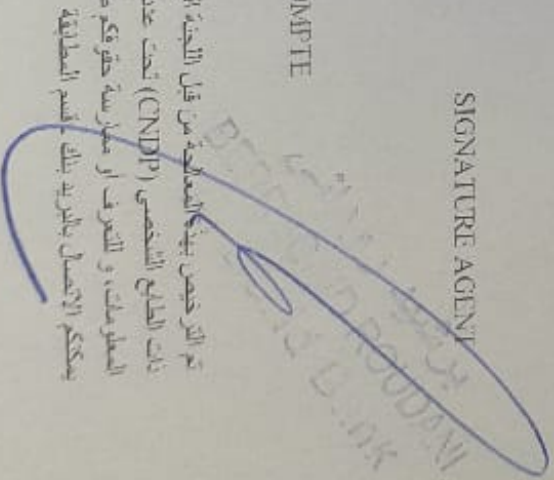 SIGNATURE AGENT
OMPTE
ROUDANI
تم الترخيص بهذه المعالجة من قبل اللجنة
ذات الطابع الشخصي (CNDP) تحت عدد
المعلومات، و للتعرف أو ممارسة حقوقكم
يمكنكم الاتصال بالبريد بنك قسم المطابقة